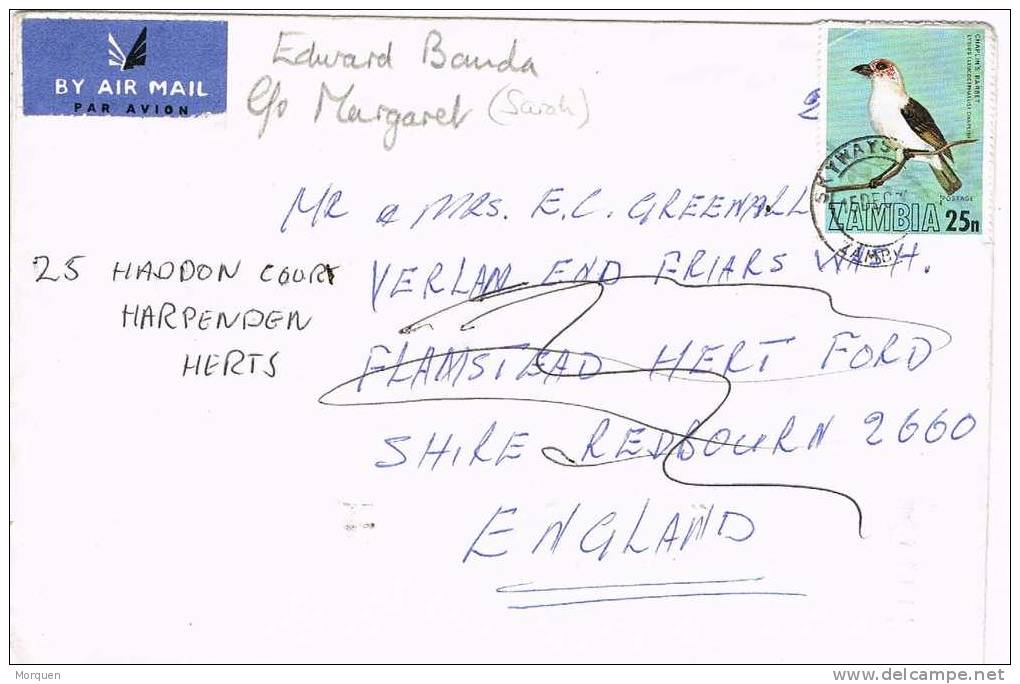 BY AIR MAIL
PAR AVION
Edward Banda
C/o Margaret (Sarah)
CHAPLIN'S BARBET
POSTAGE
ZAMBIA 25n
SKYWAYS
DEC
ZAMBIA
MR & MRS. E.C. GREENALL
VERLAM END FRIARS WASH.
FLAMSTEAD HERT FORD
SHIRE REDBOURN 2660
ENGLAND
25 HADDON COURT
HARPENDEN
HERTS
Morquen
delcampe.net